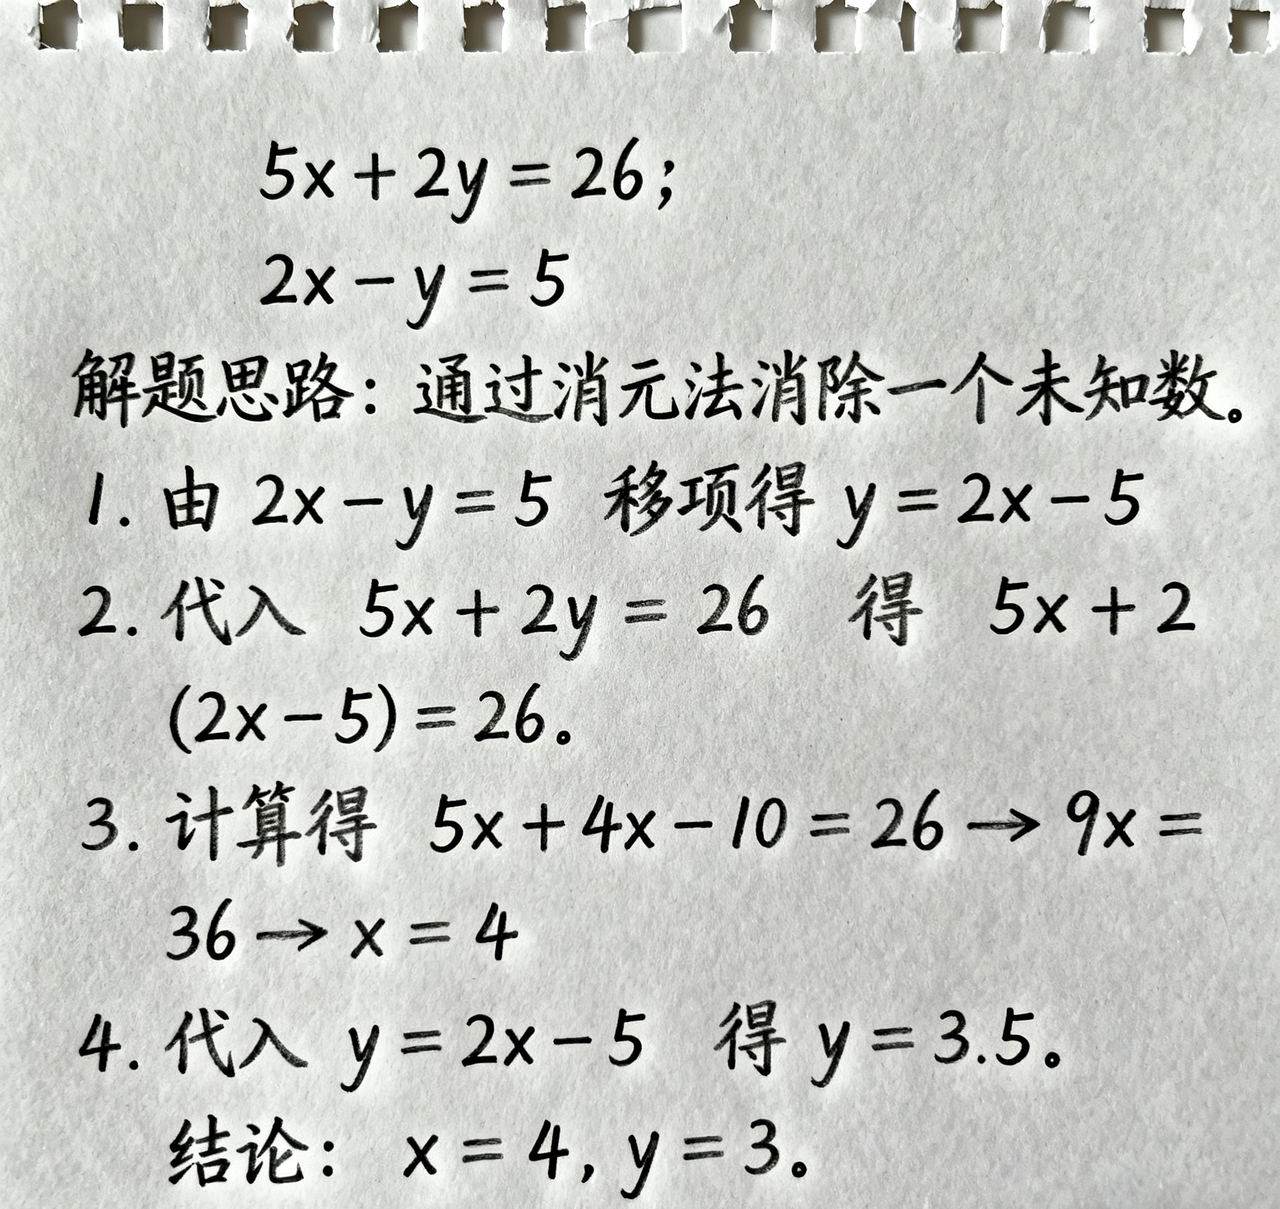 5x + 2y = 26;
2x − y = 5
解题思路：通过消元法消除一个未知数。
1. 由 2x − y = 5 移项得 y = 2x − 5
2. 代入 5x + 2y = 26 得 5x + 2
(2x − 5) = 26。
3. 计算得 5x + 4x − 10 = 26 → 9x =
36 → x = 4
4. 代入 y = 2x − 5 得 y = 3.5。
结论： x = 4, y = 3。